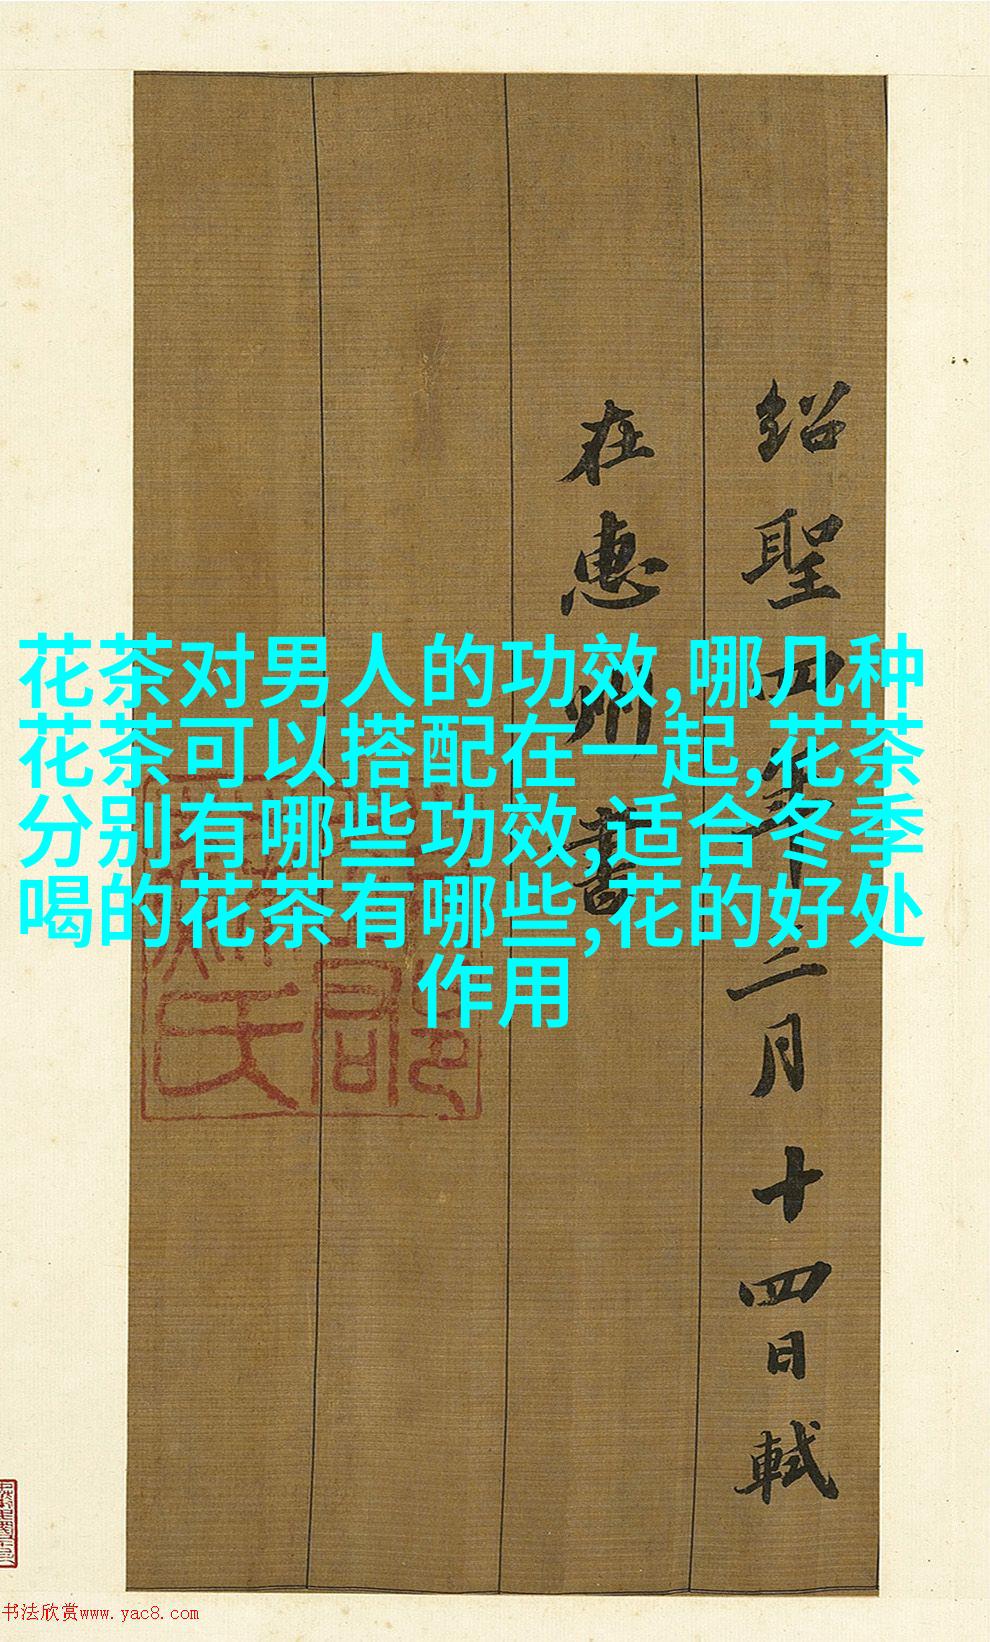 花茶对男人的功效,哪几种
花茶可以搭配在一起,花茶
分别有哪些功效,适合冬季
喝的花茶有哪些,花的好处
作用
紹聖四年二月十四日軾
在惠州書
书法欣赏www.yac8.com